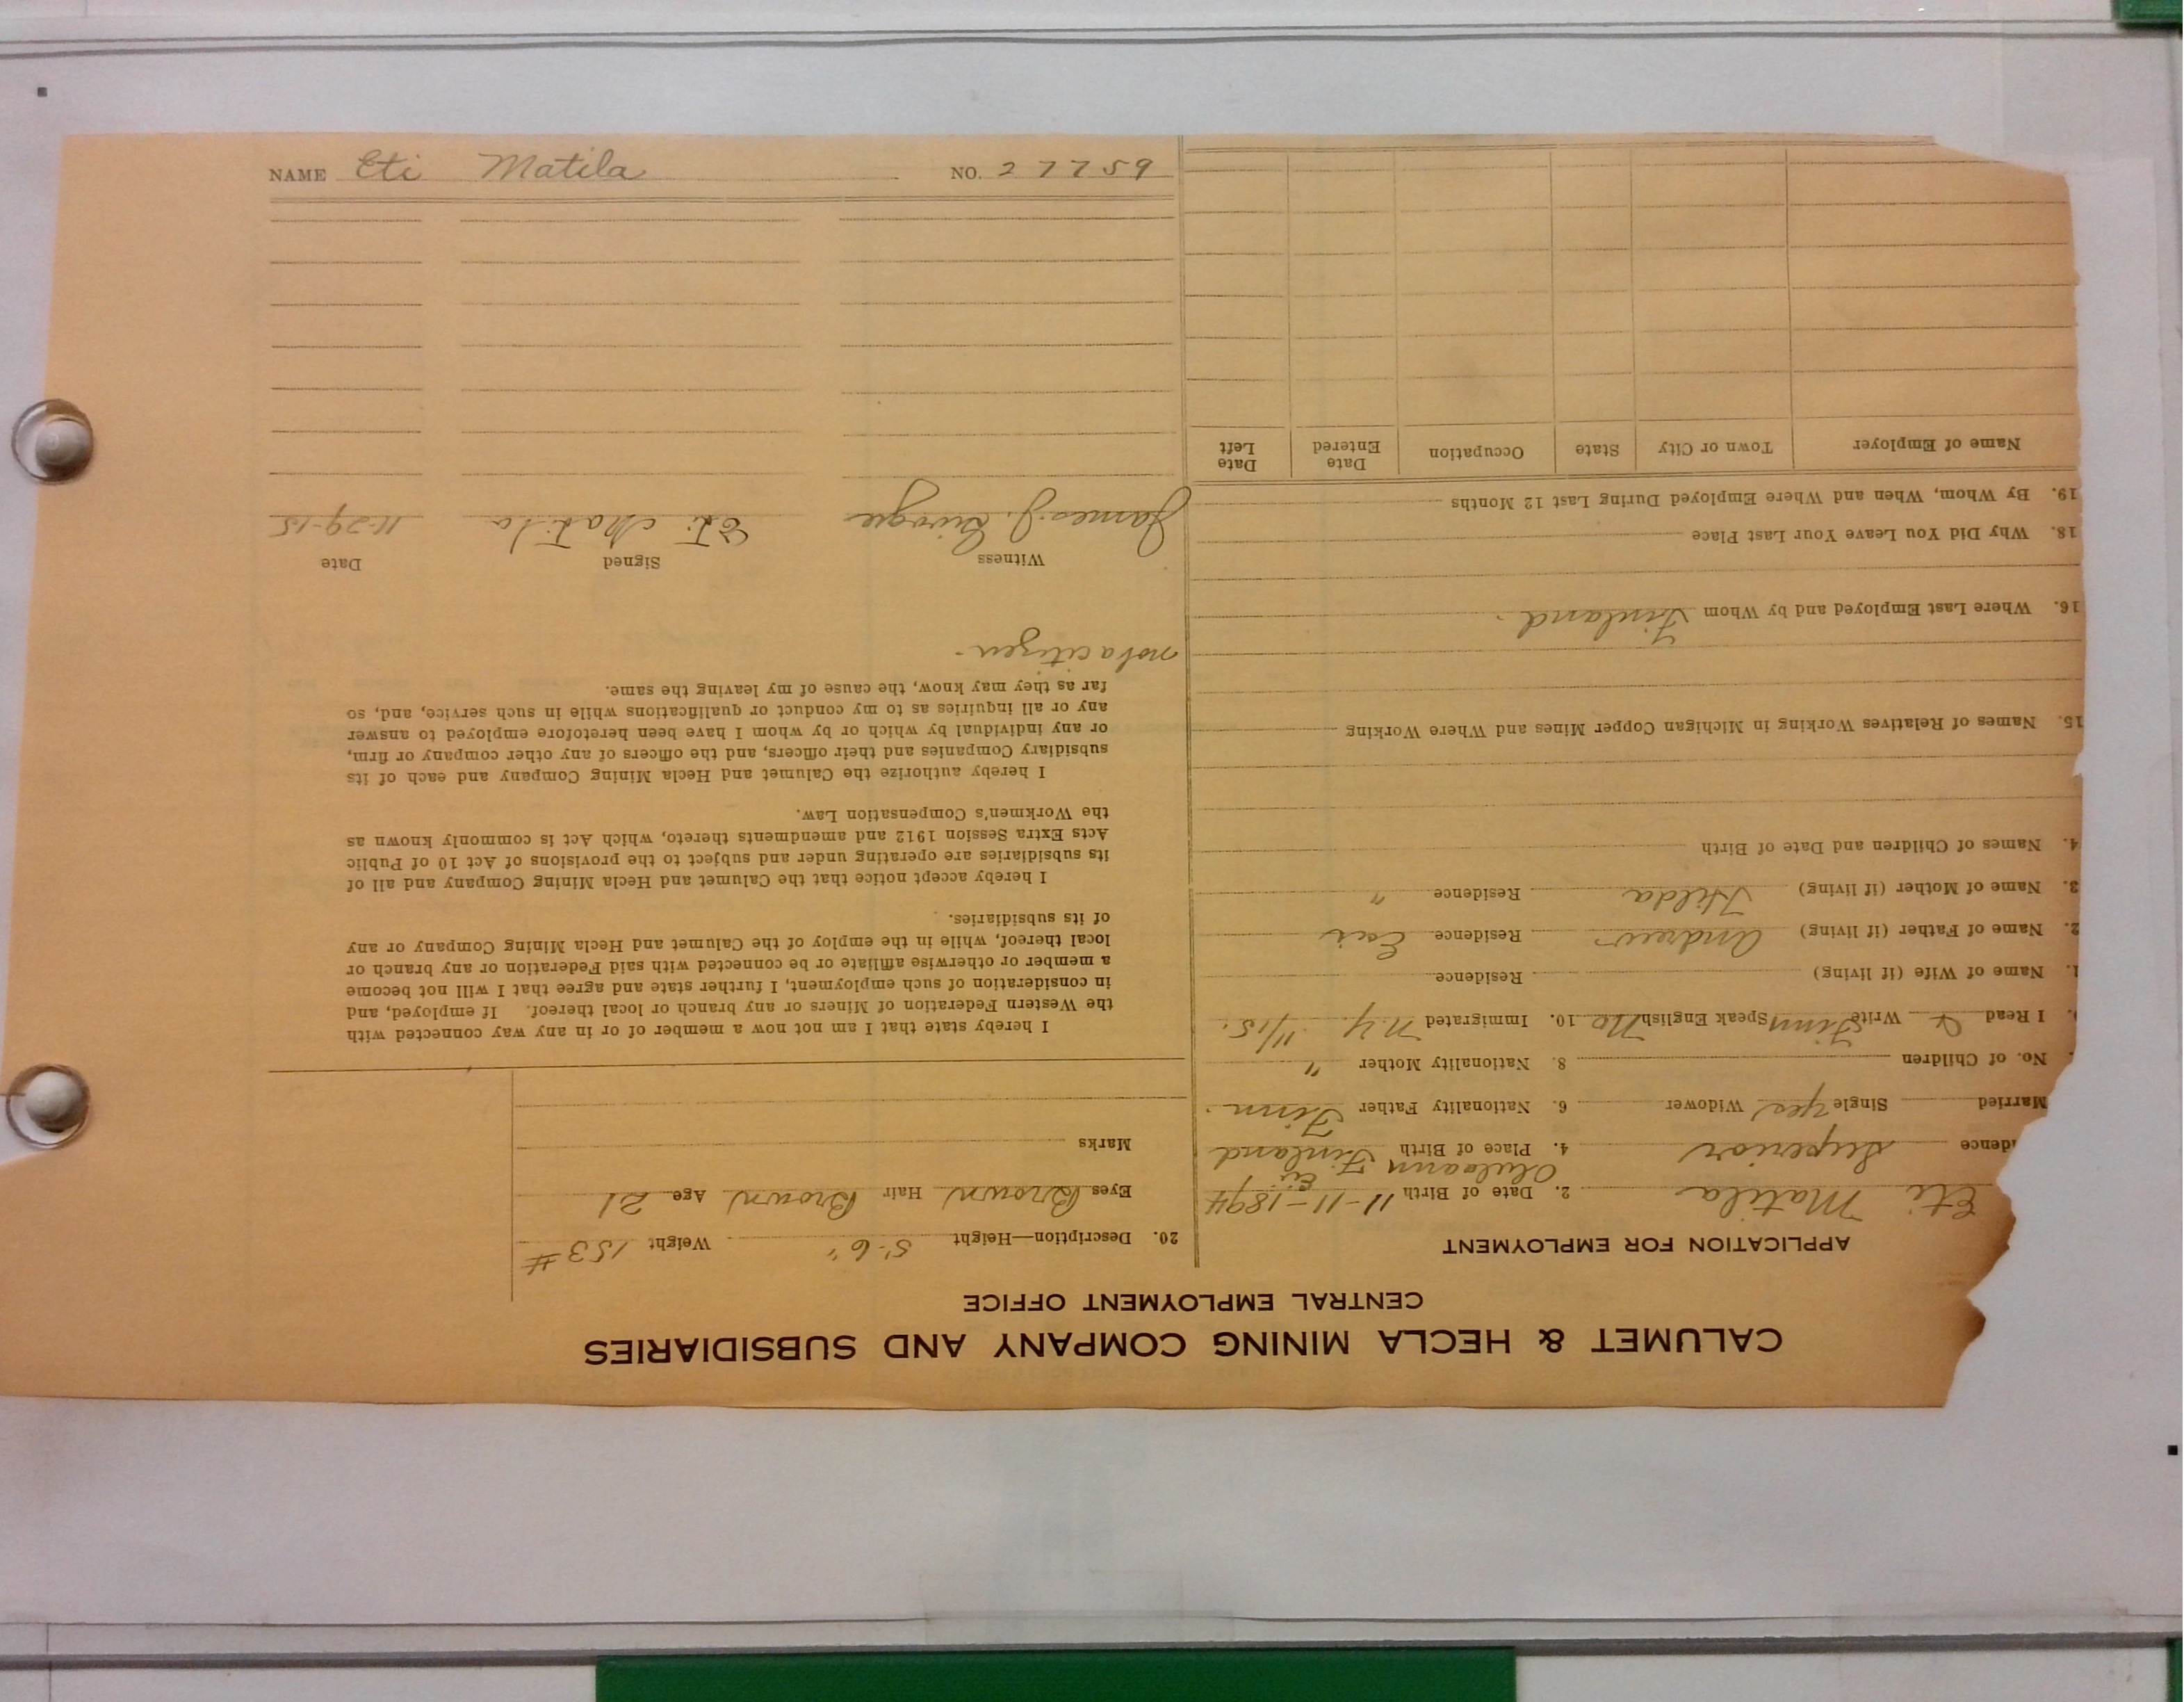 CALUMET & HECLA MINING COMPANY AND SUBSIDIARIES
CENTRAL EMPLOYMENT OFFICE
APPLICATION FOR EMPLOYMENT
Eti Matila 2. Date of Birth 11-11-1894
idence Superior 4. Place of Birth Finland
Married Single Yes Widower 6. Nationality Father Finn.
No. of Children 8. Nationality Mother "
I Read & Write Finn Speak English No 10. Immigrated N.Y. 11/15.
1. Name of Wife (if living) Residence
2. Name of Father (if living) Andrew Residence
3. Name of Mother (if living) Hilda Residence "
4. Names of Children and Date of Birth
15. Names of Relatives Working in Michigan Copper Mines and Where Working
16. Where Last Employed and by Whom Finland.
18. Why Did You Leave Your Last Place
19. By Whom, When and Where Employed During Last 12 Months
Name of Employer Town or City State Occupation Date Entered Date Left
20. Description—Height 5'-6" Weight 153#
Eyes Brown Hair Brown Age 21
Marks
I hereby state that I am not now a member of or in any way connected with
the Western Federation of Miners or any branch or local thereof. If employed, and
in consideration of such employment, I further state and agree that I will not become
a member or otherwise affiliate or be connected with said Federation or any branch or
local thereof, while in the employ of the Calumet and Hecla Mining Company or any
of its subsidiaries.
I hereby accept notice that the Calumet and Hecla Mining Company and all of
its subsidiaries are operating under and subject to the provisions of Act 10 of Public
Acts Extra Session 1912 and amendments thereto, which Act is commonly known as
the Workmen's Compensation Law.
I hereby authorize the Calumet and Hecla Mining Company and each of its
subsidiary Companies and their officers, and the officers of any other company or firm,
or any individual by which or by whom I have been heretofore employed to answer
any or all inquiries as to my conduct or qualifications while in such service, and, so
far as they may know, the cause of my leaving the same.
not a citizen.
Witness Signed Date
James J. Eti Matila 11-29-15
NAME Eti Matila NO. 27759